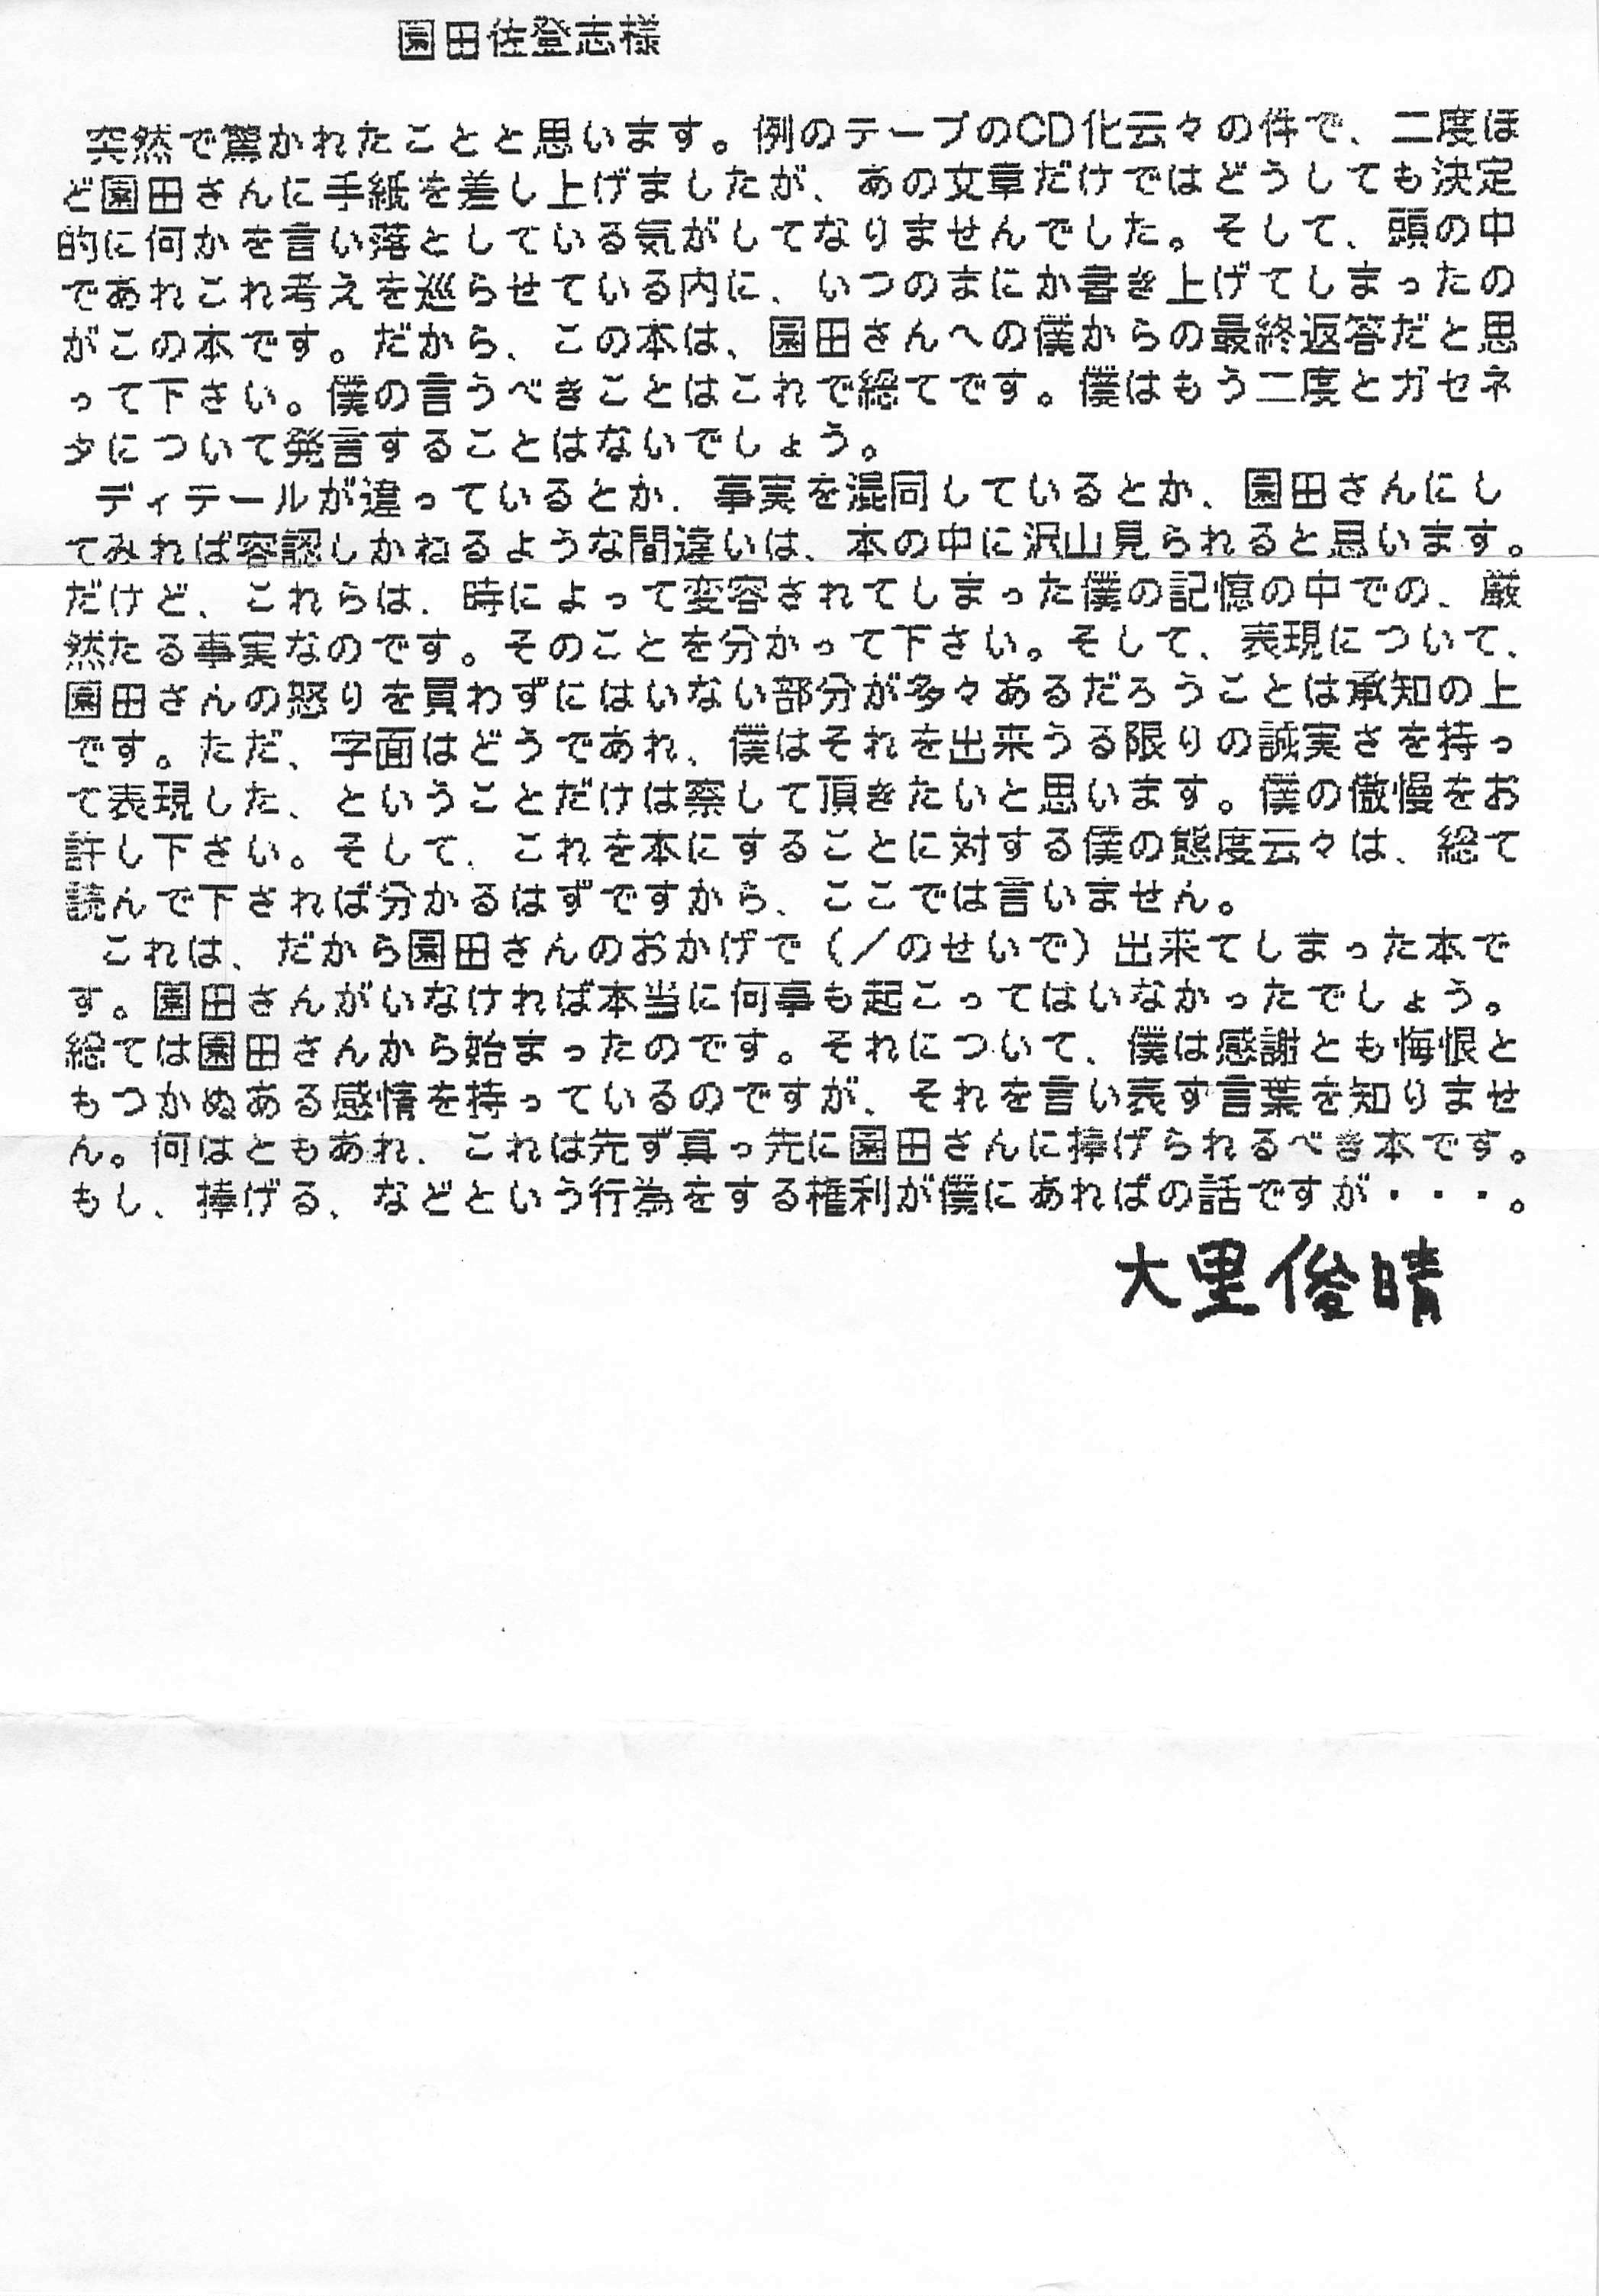 園田佐登志様
突然で驚かれたことと思います。例のテープのCD化云々の件で、二度ほ
ど園田さんに手紙を差し上げましたが、あの文章だけではどうしても決定
的に何かを言い落としている気がしてなりませんでした。そして、頭の中
であれこれ考えを巡らせている内に、いつのまにか書き上げてしまったの
がこの本です。だから、この本は、園田さんへの僕からの最終返答だと思
って下さい。僕の言うべきことはこれで総てです。僕はもう二度とガセネ
タについて発言することはないでしょう。
ディテールが違っているとか、事実を混同しているとか、園田さんにし
てみれば容認しかねるような間違いは、本の中に沢山見られると思います。
だけど、これらは、時によって変容されてしまった僕の記憶の中での、厳
然たる事実なのです。そのことを分かって下さい。そして、表現について、
園田さんの怒りを買わずにはいない部分が多々あるだろうことは承知の上
です。ただ、字面はどうであれ、僕はそれを出来うる限りの誠実さを持っ
て表現した、ということだけは察して頂きたいと思います。僕の傲慢をお
許し下さい。そして、これを本にすることに対する僕の態度云々は、総て
読んで下されば分かるはずですから、ここでは言いません。
これは、だから園田さんのおかげで（／のせいで）出来てしまった本で
す。園田さんがいなければ本当に何事も起こってはいなかったでしょう。
総ては園田さんから始まったのです。それについて、僕は感謝とも悔恨と
もつかぬある感情を持っているのですが、それを言い表す言葉を知りませ
ん。何はともあれ、これは先ず真っ先に園田さんに捧げられるべき本です。
もし、捧げる、などという行為をする権利が僕にあればの話ですが・・・。
大里俊晴